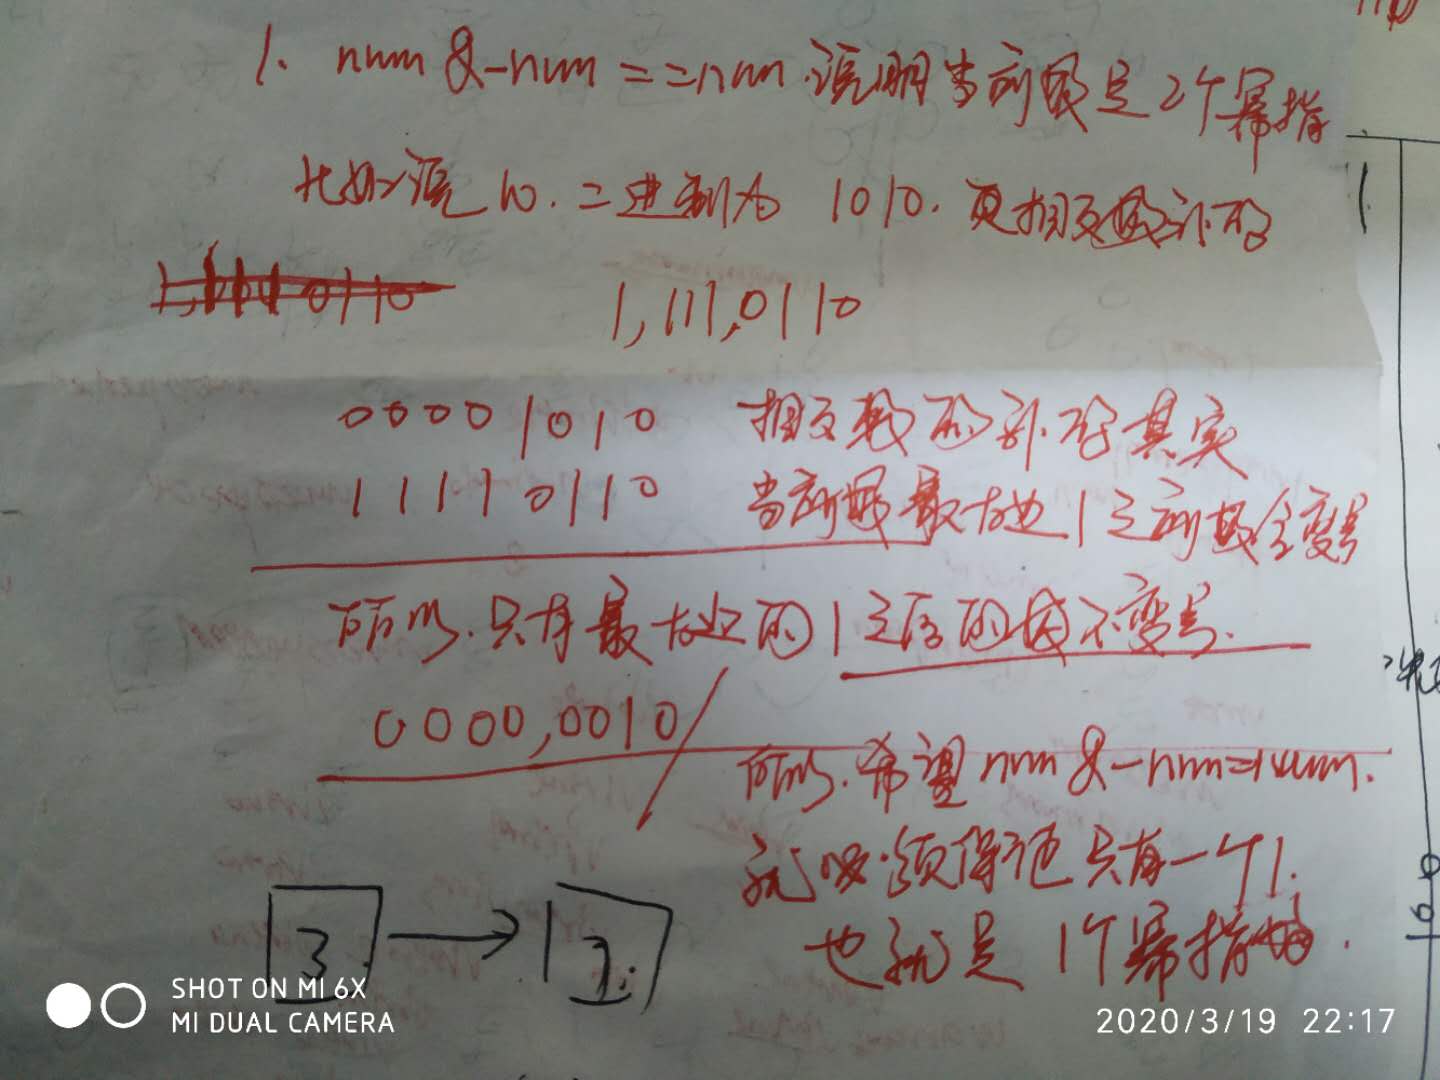 1. num & -num == num 说明当前数是2个幂指
比如说10.二进制为 1010.更相反数补码
1,111,0110
00001010 相反数的补码其实
11110110 当前数最右边1之前数全变号
所以.只有最右边的1之后的数不变号.
0000,0010
所以.希望num & -num = num.
就必须保证只有一个1.
也就是1个幂指
3 → 2
SHOT ON MI 6X
MI DUAL CAMERA
2020/3/19 22:17